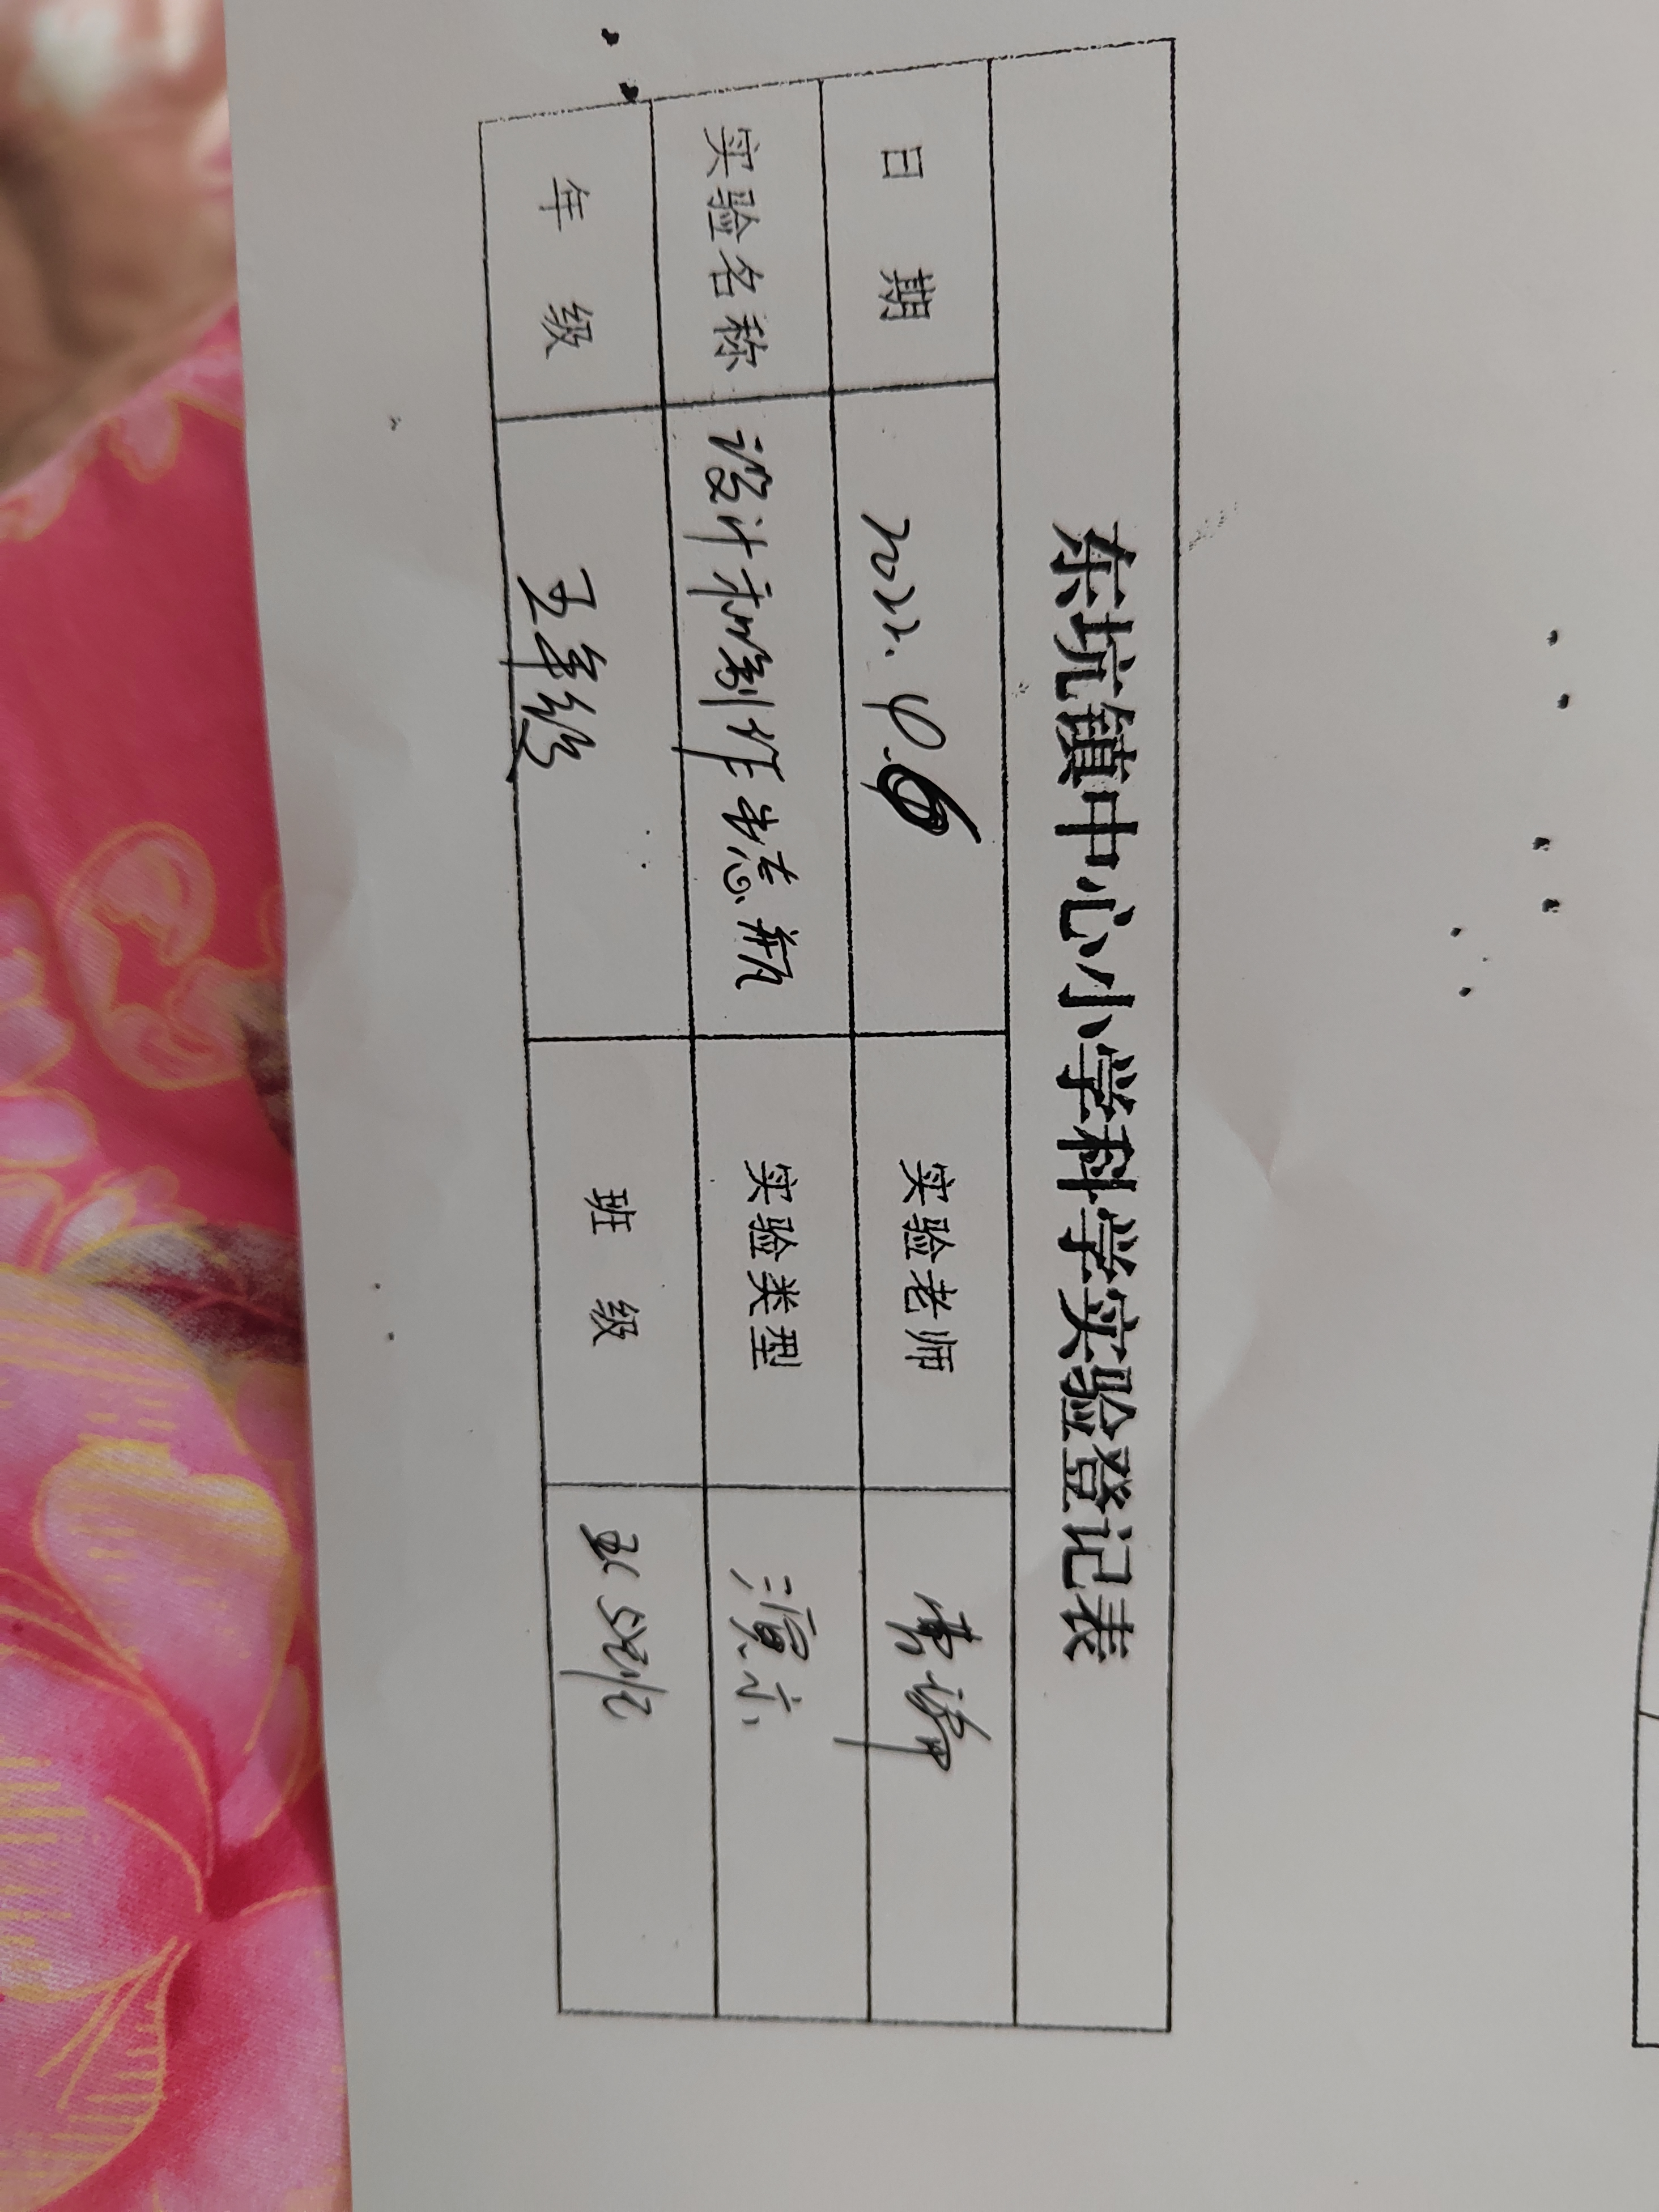 东坑镇中心小学科学实验登记表
日 期 2022.4.6 实验老师
实验名称 设计和制作生态瓶 实验类型 演示
年 级 五年级 班 级 班